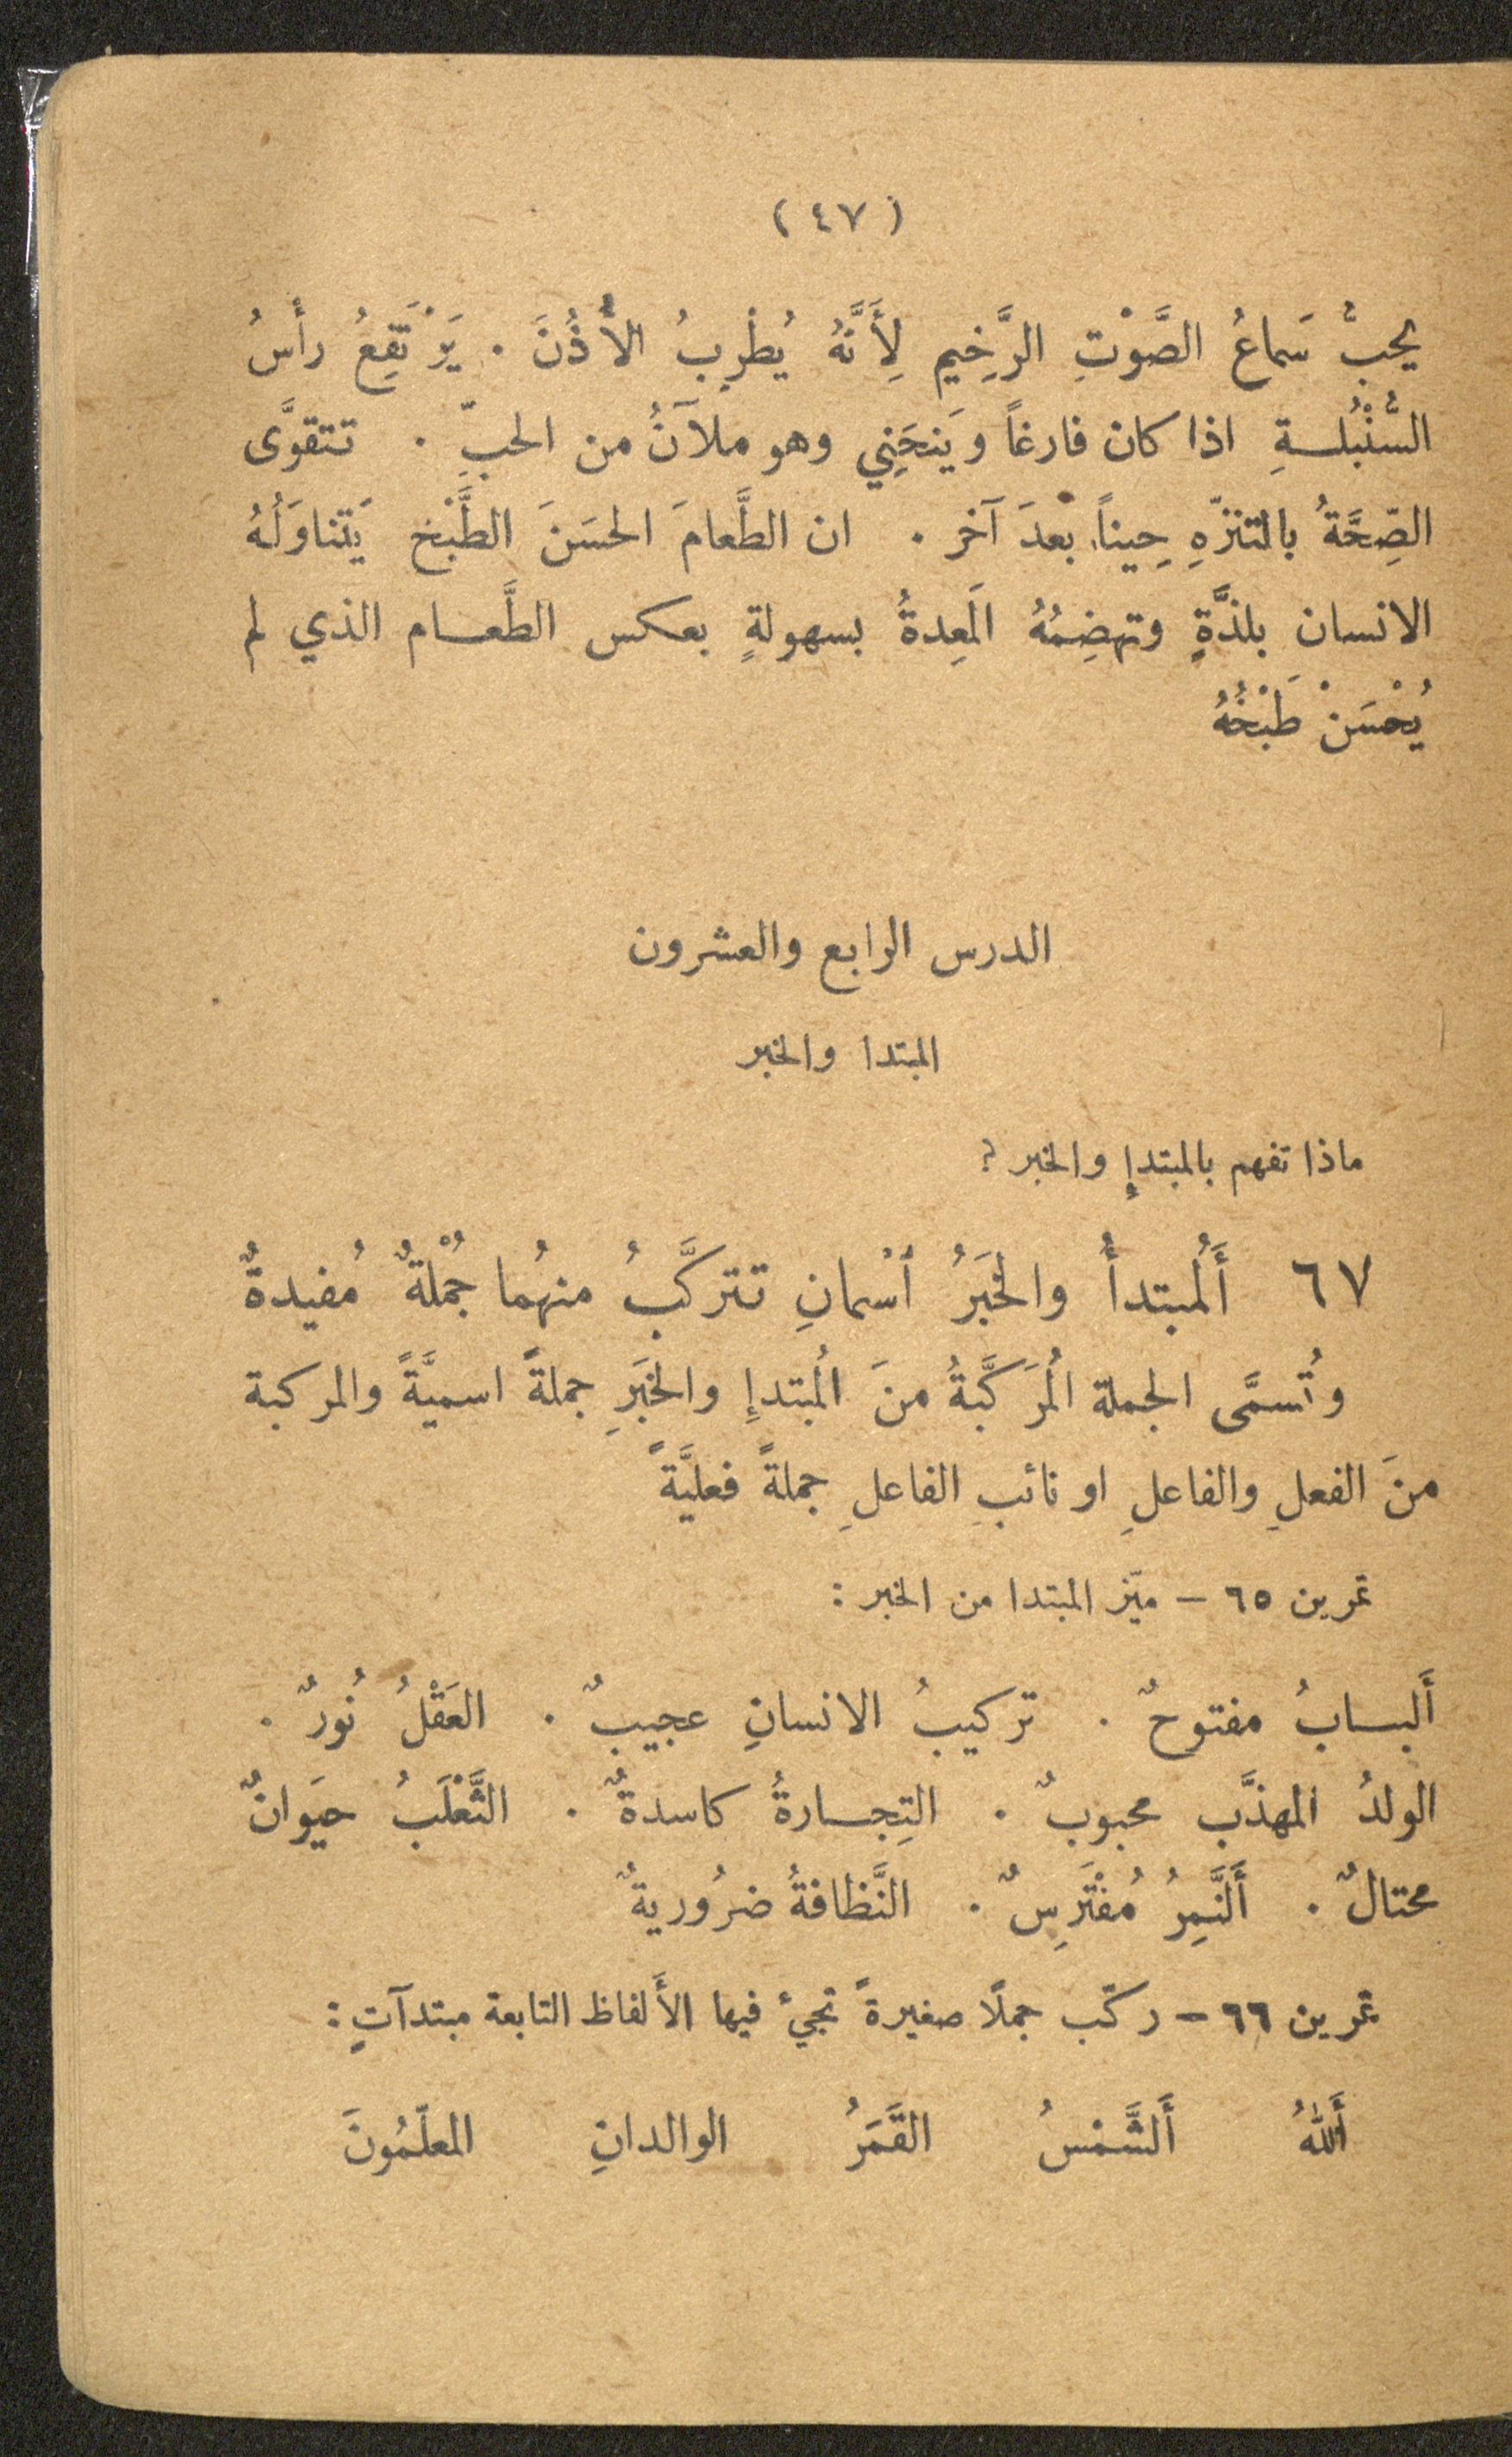 (٤٧)
يحبُّ سَماعُ الصَّوْتِ الرَّخِيم لِأَنَّهُ يُطْرِبُ الأُذُنَ . يَرْتَفِعُ رأسُ
السُّنْبُلةِ اذا كان فارغاً ويَنحَنِي وهو ملآنُ من الحبِّ . تتقوَّى
الصِّحَّةُ بالتنزّهِ حِيناً بعدَ آخر . ان الطَّعامَ الحسَنَ الطَّبْخ يَتناوَلُهُ
الانسان بلذَّةٍ وتهضِمُهُ المَعِدةُ بسهولةٍ بعكس الطَّعام الذي لم
يُحْسَنْ طَبْخُهُ
الدرس الرابع والعشرون
المبتدا والخبر
ماذا تفهم بالمبتدإِ والخبر ؟
٦٧ أَلمُبتدأُ والخَبَرُ اسْمانِ تتركَّبُ منهُما جُمْلةٌ مُفيدةٌ
وتُسمَّى الجملة المُرَكَّبةُ منَ المُبتدإِ والخَبَرِ جملةً اسميَّةً والمركبة
منَ الفعلِ والفاعلِ او نائبِ الفاعلِ جملةً فعليَّةً
تمرين ٦٥ – ميّز المبتدا من الخبر :
أَلبابُ مفتوحٌ . تركيبُ الانسانِ عجيبٌ . العَقْلُ نُورٌ .
الولدُ المهذَّب محبوبٌ . التِجارةُ كاسدةٌ . الثَّعْلَبُ حيَوانٌ
محتالٌ . أَلنَّمِرُ مُفْتَرِسٌ . النَّظافةُ ضرُوريةٌ
تمرين ٦٦ – ركّب جملًا صغيرةً تجيءُ فيها الأَلفاظ التابعة مبتدآتٍ :
أَللهُ أَلشَّمْسُ القَمَرُ الوالدانِ المعلّمُونَ